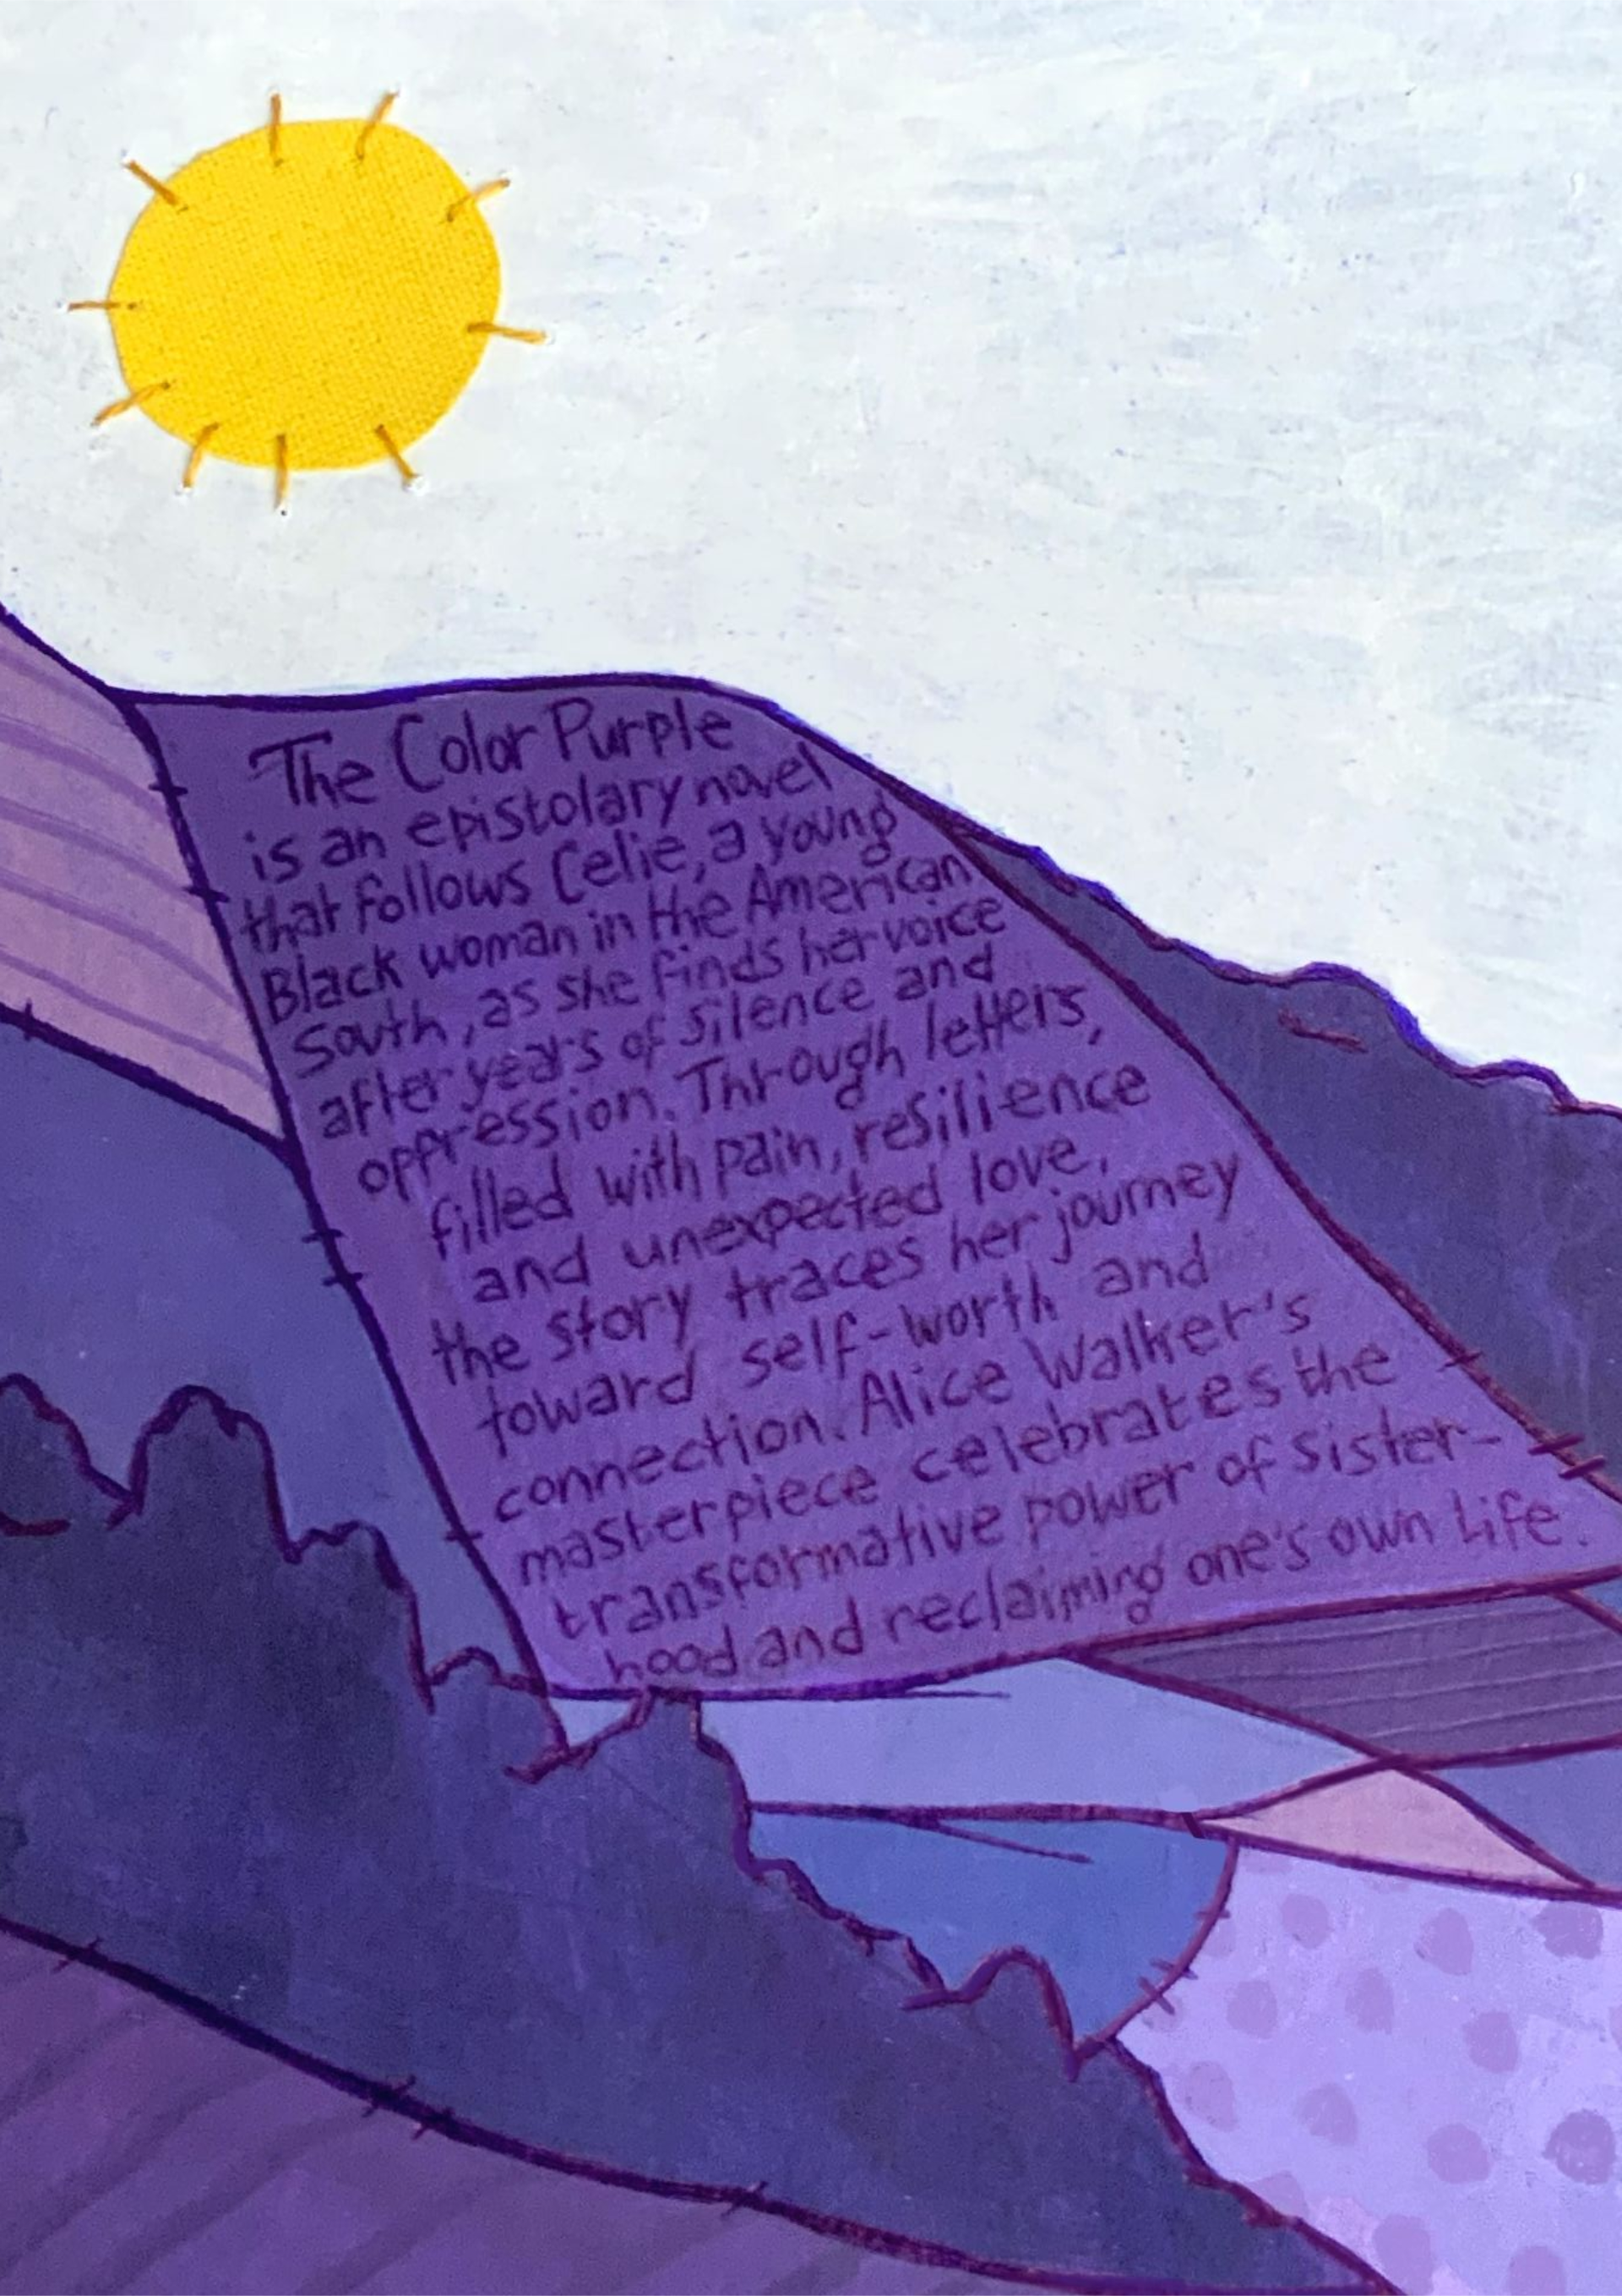 The Color Purple
is an epistolary novel
that follows Celie, a young
Black woman in the American
South, as she finds her voice
after years of silence and
oppression. Through letters,
filled with pain, resilience
and unexpected love,
the story traces her journey
toward self-worth and
connection. Alice Walker's
masterpiece celebrates the
transformative power of sister-
hood and reclaiming one's own life.